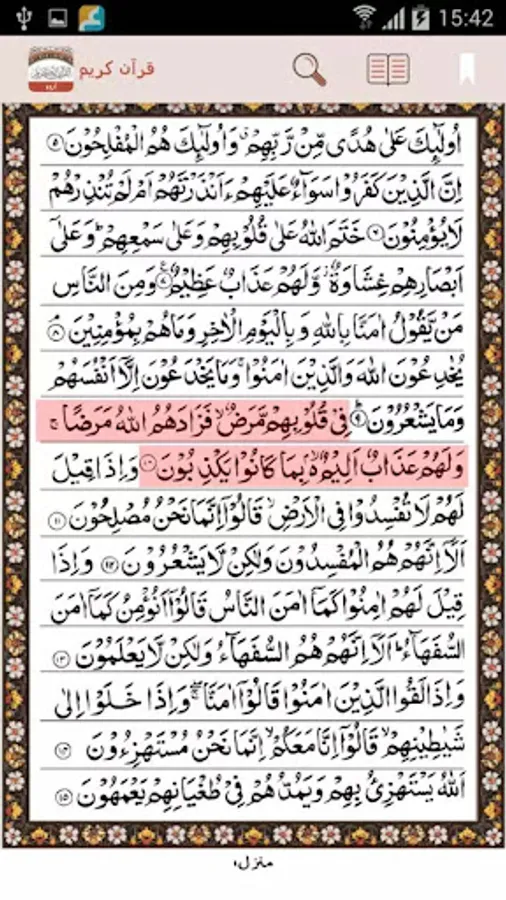 15:42
قرآن کریم
اُولٰٓئِكَ عَلٰى هُدًى مِّنْ رَّبِّهِمْ ۙ وَاُولٰٓئِكَ هُمُ الْمُفْلِحُوْنَ ۝۵
اِنَّ الَّذِيْنَ كَفَرُوْا سَوَآءٌ عَلَيْهِمْ ءَاَنْذَرْتَهُمْ اَمْ لَمْ تُنْذِرْهُمْ
لَا يُؤْمِنُوْنَ ۝۶ خَتَمَ اللّٰهُ عَلٰى قُلُوْبِهِمْ وَعَلٰى سَمْعِهِمْ ؕ وَعَلٰٓى
اَبْصَارِهِمْ غِشَاوَةٌ ۫ وَّلَهُمْ عَذَابٌ عَظِيْمٌ ۝۷ وَمِنَ النَّاسِ
مَنْ يَّقُوْلُ اٰمَنَّا بِاللّٰهِ وَبِالْيَوْمِ الْاٰخِرِ وَمَا هُمْ بِمُؤْمِنِيْنَ ۝۸
يُخٰدِعُوْنَ اللّٰهَ وَالَّذِيْنَ اٰمَنُوْا ۚ وَمَا يَخْدَعُوْنَ اِلَّاۤ اَنْفُسَهُمْ
وَمَا يَشْعُرُوْنَ ۝۹ فِىْ قُلُوْبِهِمْ مَّرَضٌ ۙ فَزَادَهُمُ اللّٰهُ مَرَضًا ۚ
وَلَهُمْ عَذَابٌ اَلِيْمٌۢ ۙ بِمَا كَانُوْا يَكْذِبُوْنَ ۝۱۰ وَاِذَا قِيْلَ
لَهُمْ لَا تُفْسِدُوْا فِى الْاَرْضِ ۙ قَالُوْۤا اِنَّمَا نَحْنُ مُصْلِحُوْنَ ۝۱۱
اَلَاۤ اِنَّهُمْ هُمُ الْمُفْسِدُوْنَ وَلٰكِنْ لَّا يَشْعُرُوْنَ ۝۱۲ وَاِذَا
قِيْلَ لَهُمْ اٰمِنُوْا كَمَاۤ اٰمَنَ النَّاسُ قَالُوْۤا اَنُؤْمِنُ كَمَاۤ اٰمَنَ
السُّفَهَآءُ ؕ اَلَاۤ اِنَّهُمْ هُمُ السُّفَهَآءُ وَلٰكِنْ لَّا يَعْلَمُوْنَ ۝۱۳
وَاِذَا لَقُوا الَّذِيْنَ اٰمَنُوْا قَالُوْۤا اٰمَنَّا ۖۚ وَاِذَا خَلَوْا اِلٰى
شَيٰطِيْنِهِمْ ۙ قَالُوْۤا اِنَّا مَعَكُمْ ۙ اِنَّمَا نَحْنُ مُسْتَهْزِءُوْنَ ۝۱۴
اَللّٰهُ يَسْتَهْزِئُ بِهِمْ وَيَمُدُّهُمْ فِىْ طُغْيَانِهِمْ يَعْمَهُوْنَ ۝۱۵
منزل۱